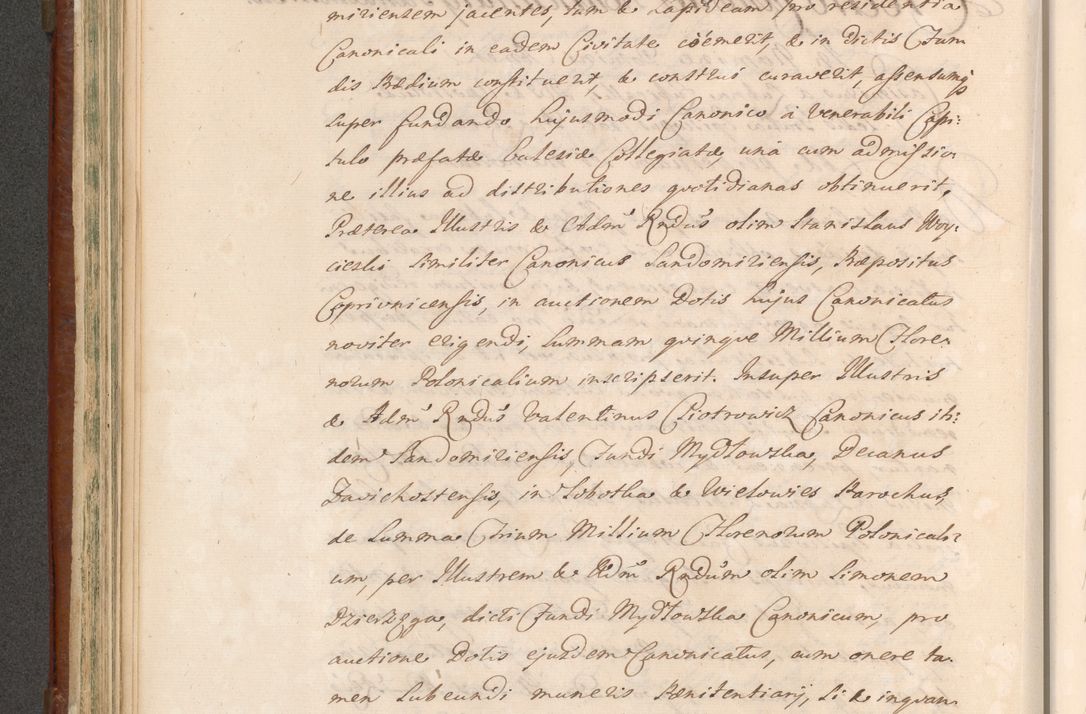 miriensem jacentes, tum & Lapideam pro residentia
Canonicali in eadem Civitate coëmerit, & in dictis Fun
dis Prædium constituerit, & construi curaverit, assensumq̃
super fundando hujusmodi Canonico à Venerabili Capi:
tulo præfatæ Ecclesiæ Collegiatæ, unà cum admissio
ne illius ad distributiones quotidianas obtinuerit,
Præterea Illustris & Adm̃ Rndus olim Stanislaus Woy:
cieski similiter Canonicus Sandomiriensis, Præpositus
Coprivnicensis, in auctionem Dotis hujus Canonicatus
noviter erigendi, Summam quinque Millium Flore-
norum Polonicalium inscripserit. Insuper Illustris
& Adm̃ Rndus Valentinus Piotrowicz Canonicus ib:
dem Sandomiriensis, Fundi Mydłowska, Decanus
Zavichostensis, in Sobotka & Wielowies Parochus,
de Summa Trium Millium Florenorum Polonicali:
um, per Illustrem & Adm̃ Rndum olim Simonem
Dzierzgga, dicti Fundi Mydłowska Canonicum, pro
auctione Dotis ejusdem Canonicatus, cum onere ta-
men subeundi muneris Pœnitentiarij, si & inquan